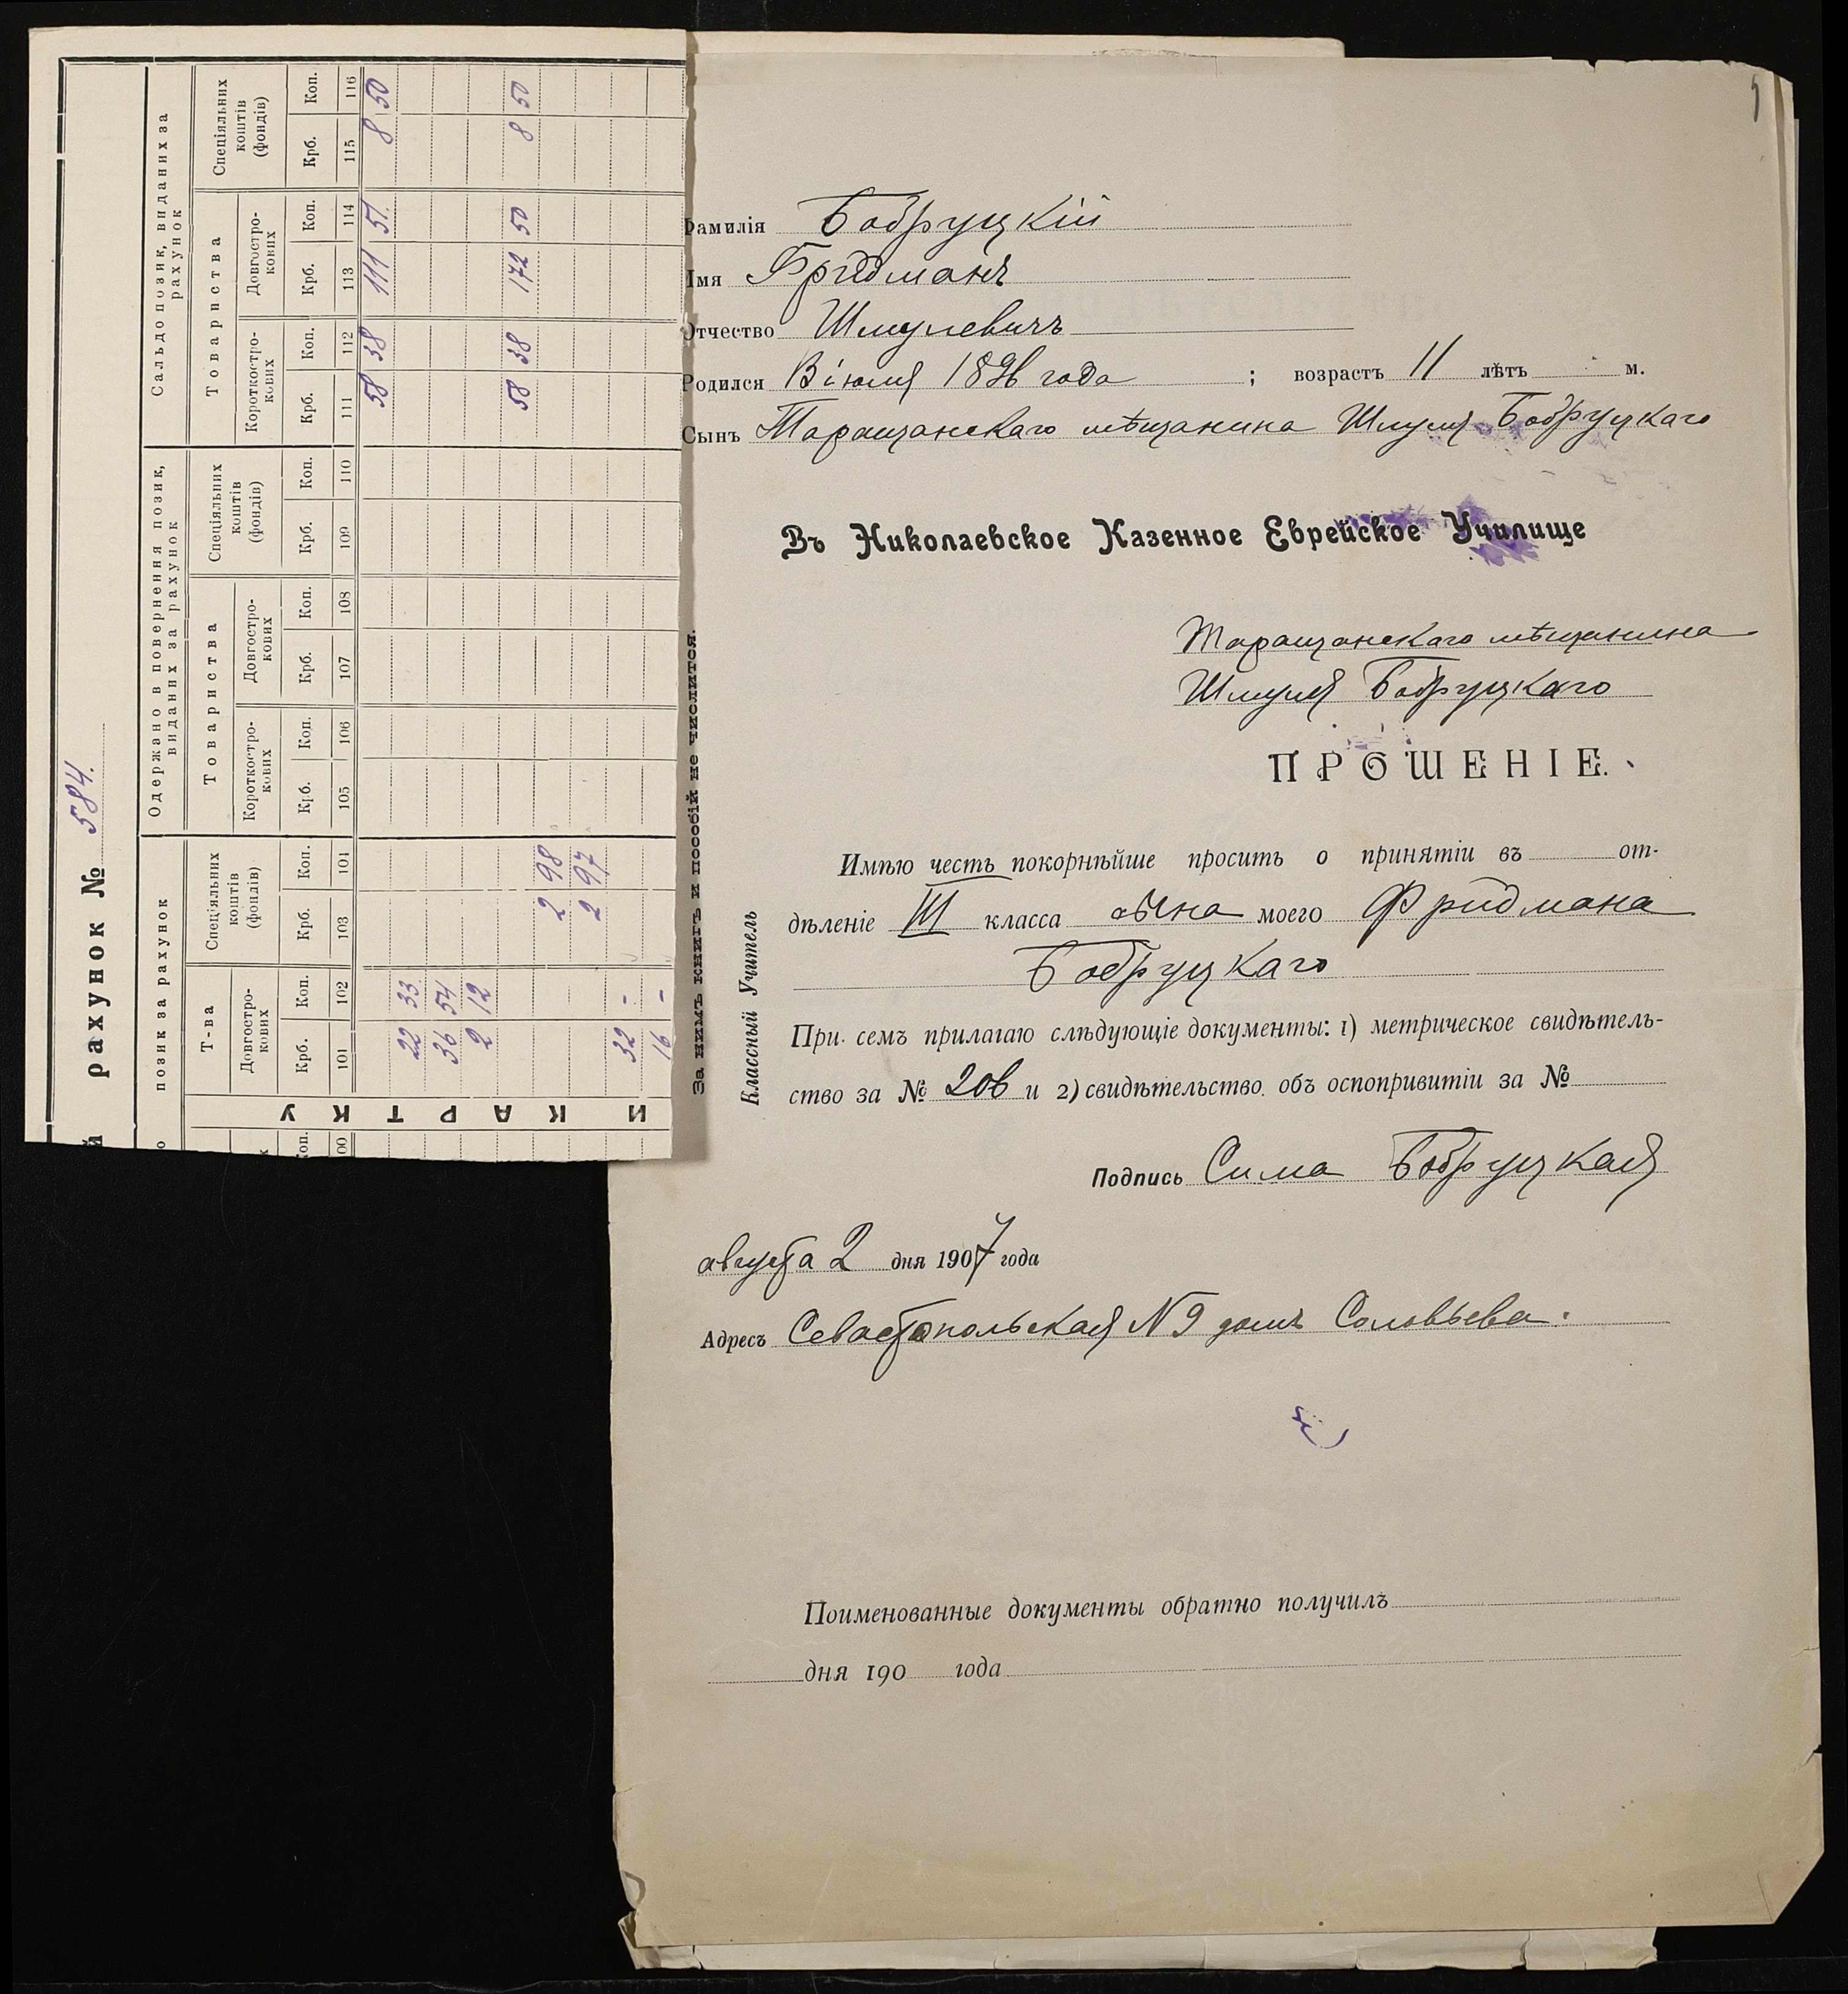 рахунок № 584.
позик за рахунок
Одержано в повернення позик, виданих за рахунок
Сальдо позик, виданих за рахунок
Т-ва
Спеціяльних коштів (фондів)
Товариства
Спеціяльних коштів (фондів)
Товариства
Спеціяльних коштів (фондів)
Довгостро-кових
Короткостро-кових
Довгостро-кових
Короткостро-кових
Довгостро-кових
Крб. Коп. Крб. Коп. Крб. Коп. Крб. Коп. Крб. Коп. Крб. Коп. Крб. Коп. Крб. Коп.
101 102 103 101 105 106 107 108 109 110 111 112 113 114 115 116
58 38 111 51. 8 50
22 33
36 54
2 12
58 38 172 50 8 50
2 98
2 97
32 -
16 -
И КАРТКУ
Фамилія Бобруцкій
Імя Фридманъ
Отчество Шмулевичъ
Родился В іюля 1896 года ; возрастъ 11 лѣтъ м.
Сынъ Таращанскаго мѣщанина Шмуля Бобруцкаго
Въ Николаевское Казенное Еврейское Училище
Таращанскаго мѣщанина
Шмуля Бобруцкаго
ПРОШЕНІЕ.
Имѣю честь покорнѣйше просить о принятіи въ от-
дѣленіе III класса сына моего Фридмана
Бобруцкаго
При семъ прилагаю слѣдующіе документы: 1) метрическое свидѣтель-
ство за № 206 и 2) свидѣтельство объ оспопривитіи за №
Подпись Сима Бобруцкая
августа 2 дня 1907 года
Адресъ Севастопольская N 9 домъ Соловьева.
Поименованные документы обратно получилъ
дня 190 года
За нимъ книгъ и пособій не числится.
Классный Учитель